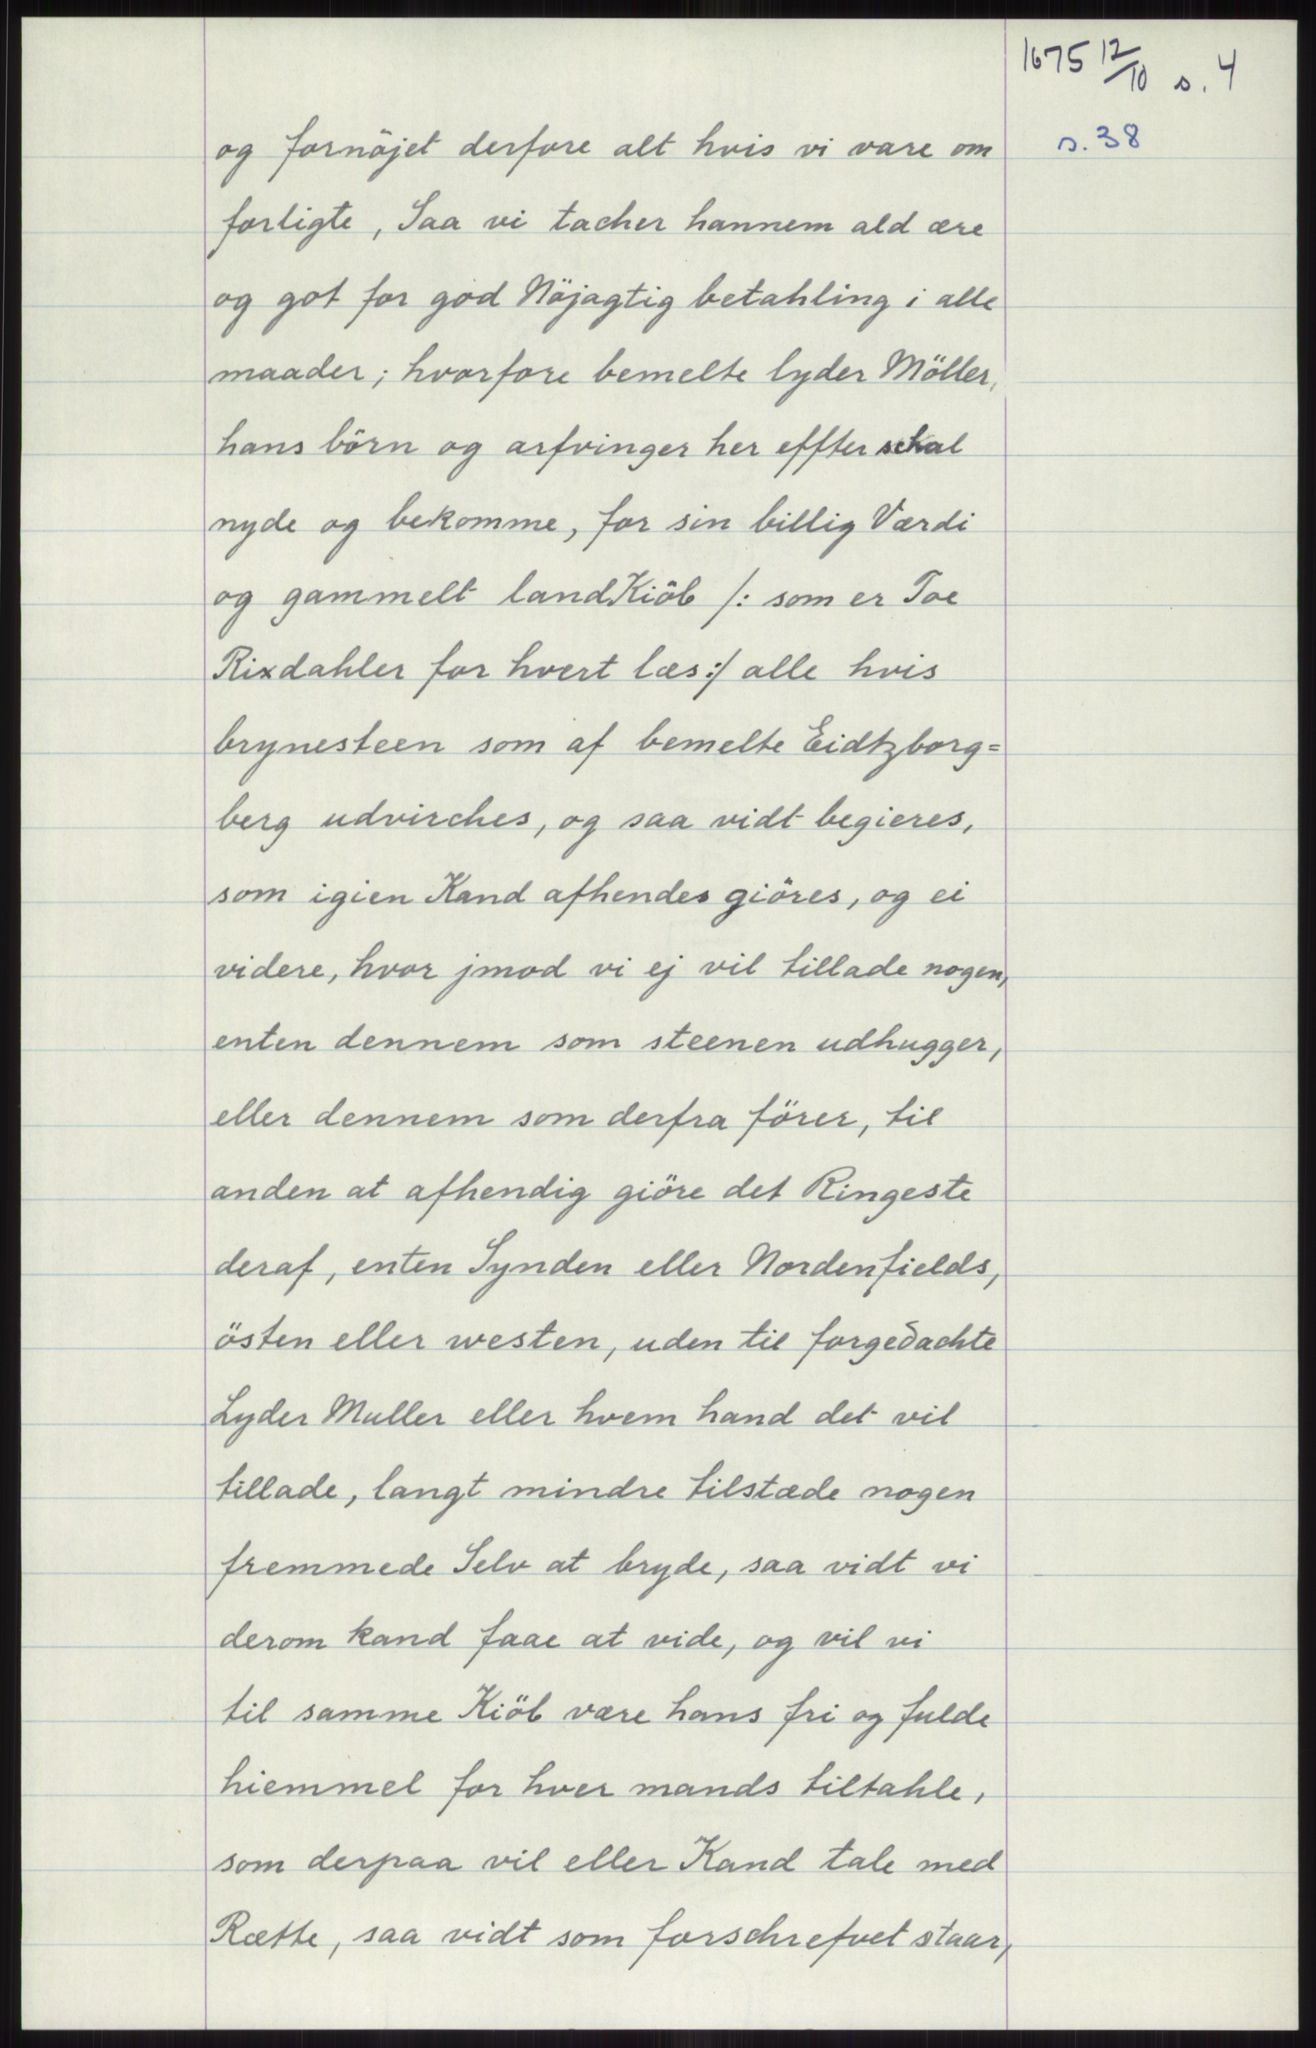 1675 12/10 s. 4
s. 38
og fornöjet derfore alt hvis vi vare om
forligte, Saa vi tacher hannem ald ære
og got for god Nöjagtig betahling i alle
maader; hvorfore bemelte lyder Möller,
hans börn og arfvinger her effter schal
nyde og bekomme, for sin billig Værdi
og gammelt landKiöb /: som er Toe
Rixdahler for hvert læs:/ alle hvis
brynesteen som af bemelte Eidtzborg=
berg udvirches, og saa vidt begieres,
som igien Kand afhendes giöres, og ei
videre, hvor jmod vi ej vil tillade nogen,
enten dennem som steenen udhugger,
eller dennem som derfra förer, til
anden at afhendig giöre det Ringeste
deraf, enten Synden eller Nordenfields,
östen eller westen, uden til forgedachte
Lyder Muller eller hvem hand det vil
tillade, langt mindre tilstæde nogen
fremmede Selv at bryde, saa vidt vi
derom kand faae at vide, og vil vi
til samme Kiöb være hans fri og fulde
hiemmel for hver mands tiltahle,
som derpaa vil eller Kand tale med
Rætte, saa vidt som forschrefvet staar,